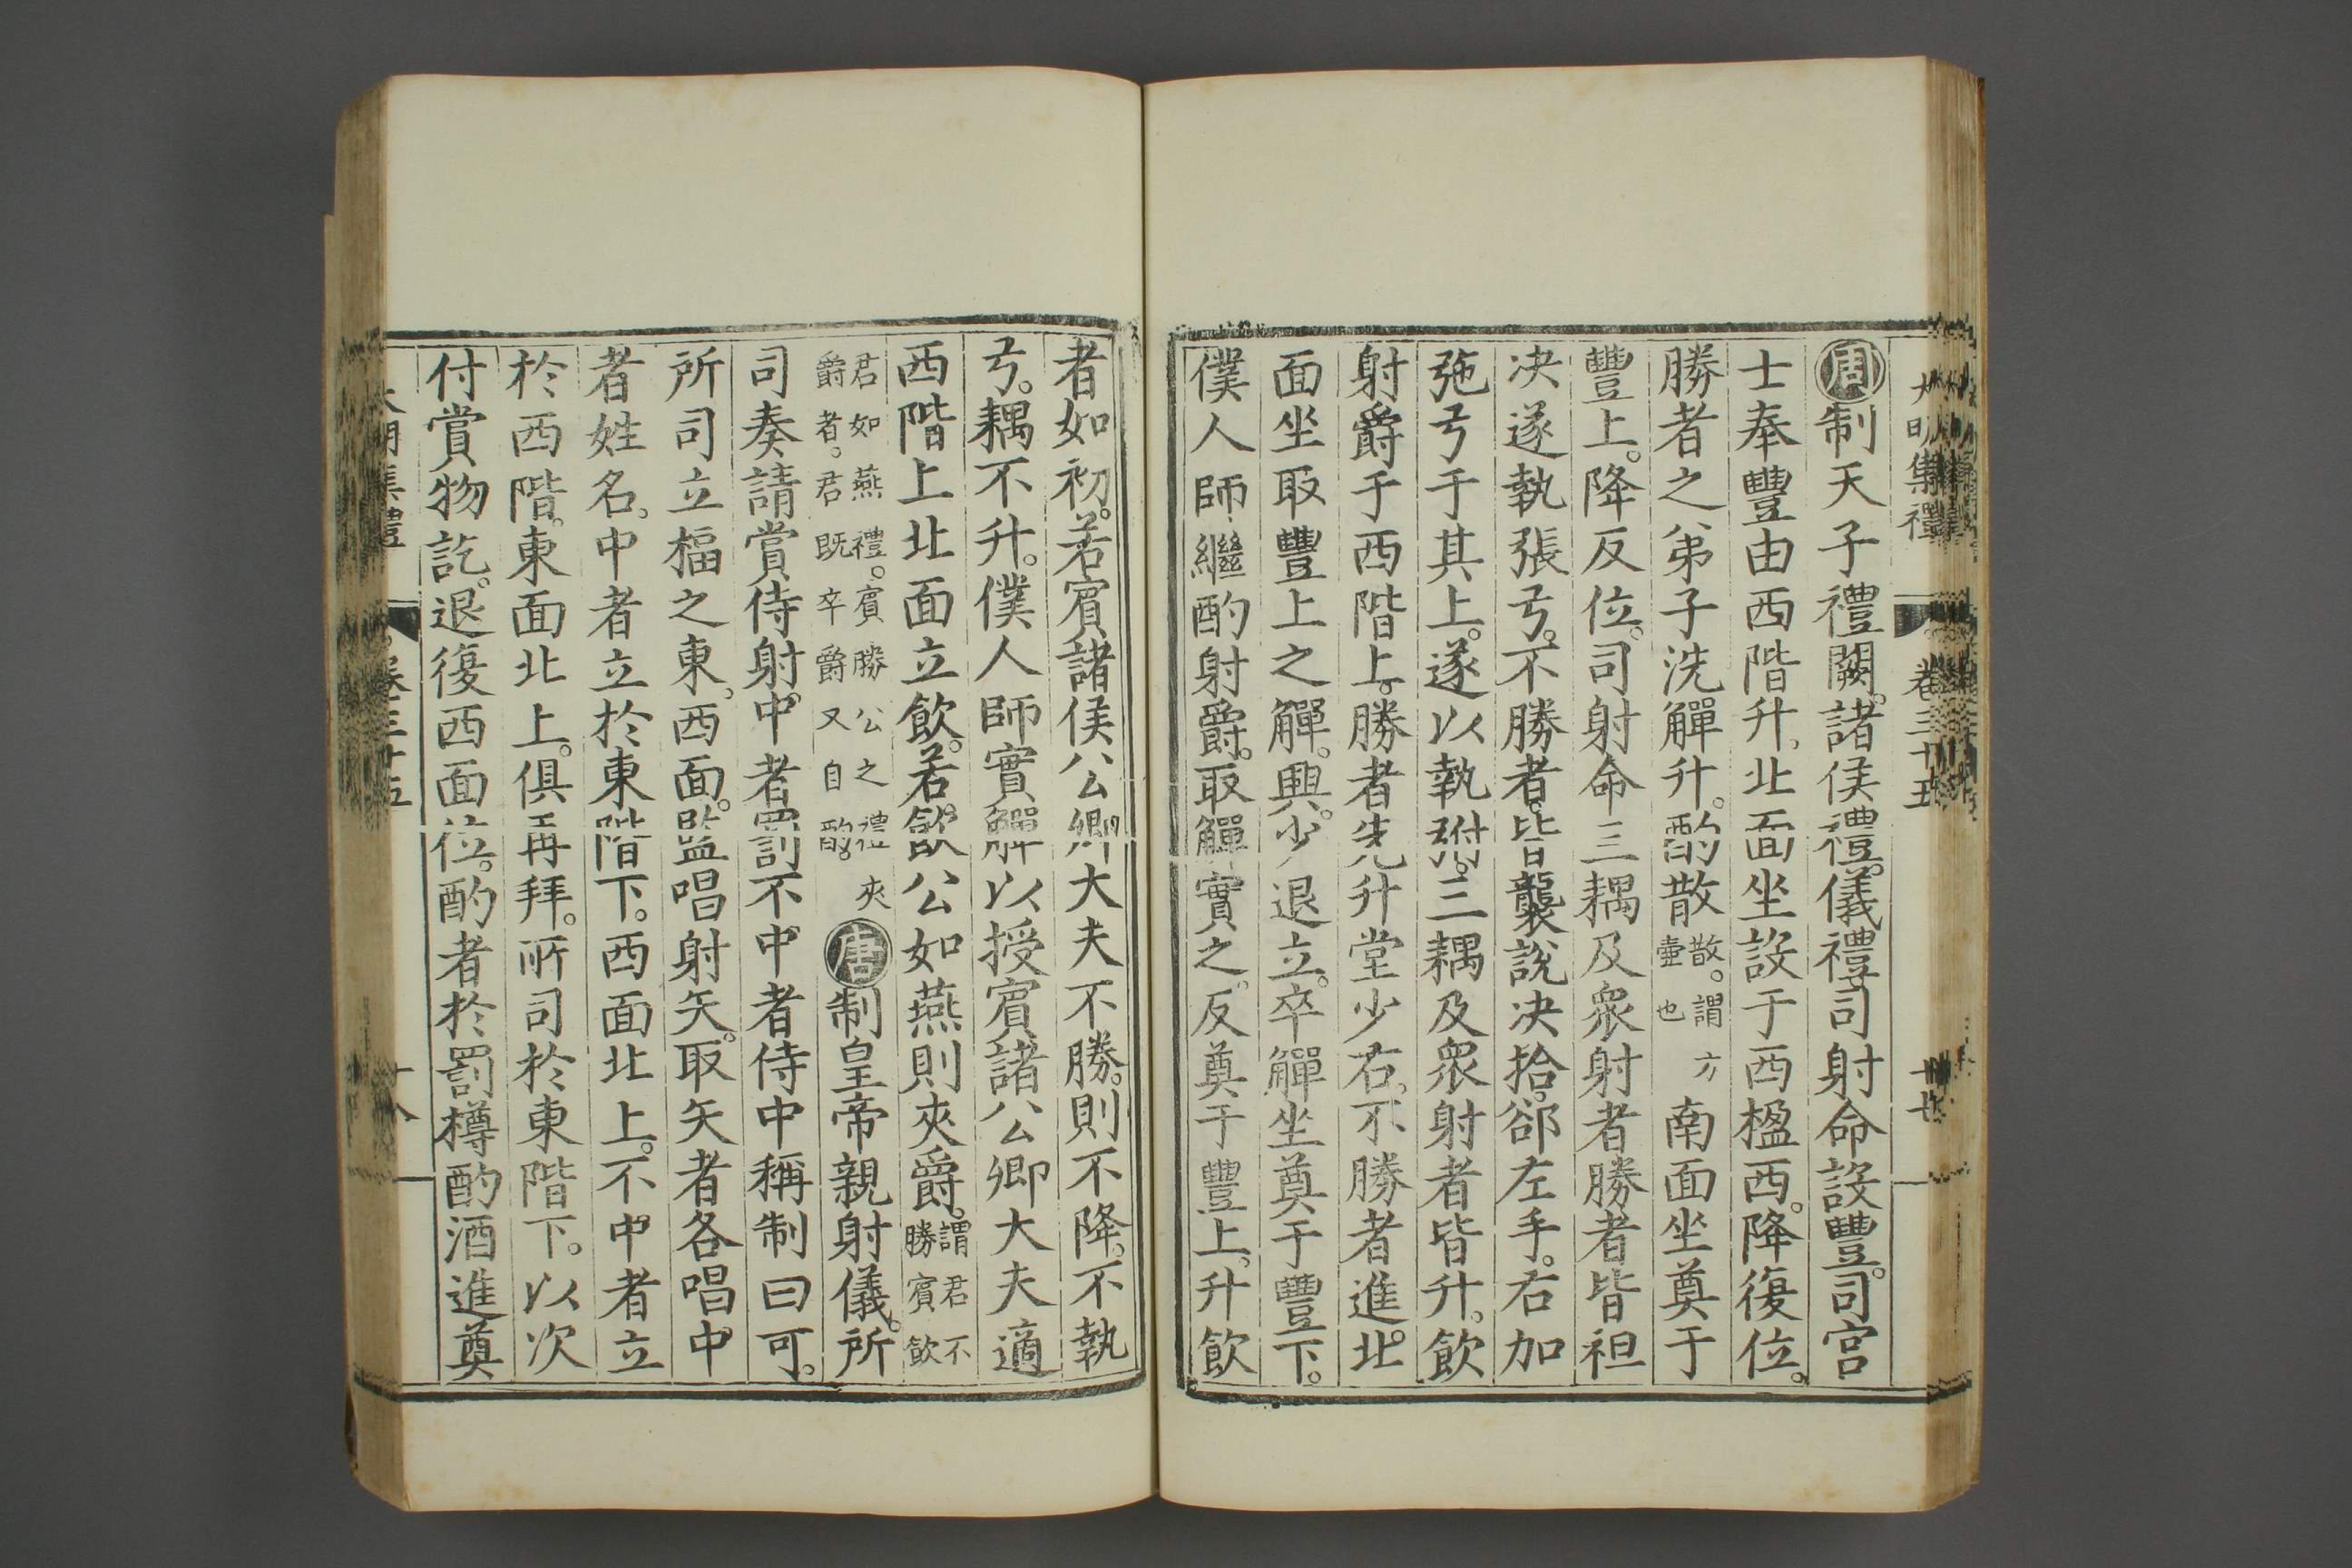 大明集禮 卷三十五 十七
周制天子禮闕。諸侯禮。儀禮。司射命設豐。司宮
士奉豐由西階升。北面坐設于西楹西。降復位。
勝者之弟子洗觶升。酌散散。謂方壷也南面坐奠于
豐上。降反位。司射命三耦及衆射者勝者皆袒
决遂執張弓。不勝者。皆襲說决拾。郤左手。右加
弛弓于其上。遂以執弣。三耦及衆射者皆升。飲
射爵于西階上。勝者先升堂少右。不勝者進。北
面坐取豐上之觶。興。少退立。卒觶坐奠于豐下。
僕人師繼酌射爵。取觶實之。反奠于豐上。升飲
者如初。若賓諸侯公卿大夫不勝。則不降。不執
弓。耦不升。僕人師實觶以授賓諸公卿大夫適
西階上北面立飲。若飲公如燕則夾爵。謂君不勝賓飲
君如燕禮。賓勝公之禮但夾爵者。君既卒爵又自酌。唐制皇帝親射儀。所
司奏請賞侍射中者罰不中者侍中稱制曰可。
所司立楅之東。西面。監唱射矢。取矢者各唱中
者姓名。中者立於東階下。西面北上。不中者立
於西階。東面北上。俱再拜。所司於東階下。以次
付賞物訖。退復西面位。酌者於罰樽酌酒進奠
大明集禮 卷三十五 十八